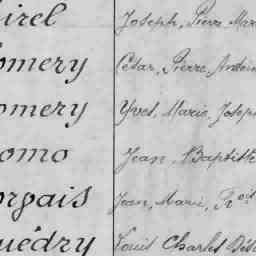 irel Joseph, Pierre Mar
omery César, Pierre, Antoine
omery Yves, Marie, Joseph
omo Jean, Baptiste
orgais Jean, Marie,
uédry Louis Charles Dés